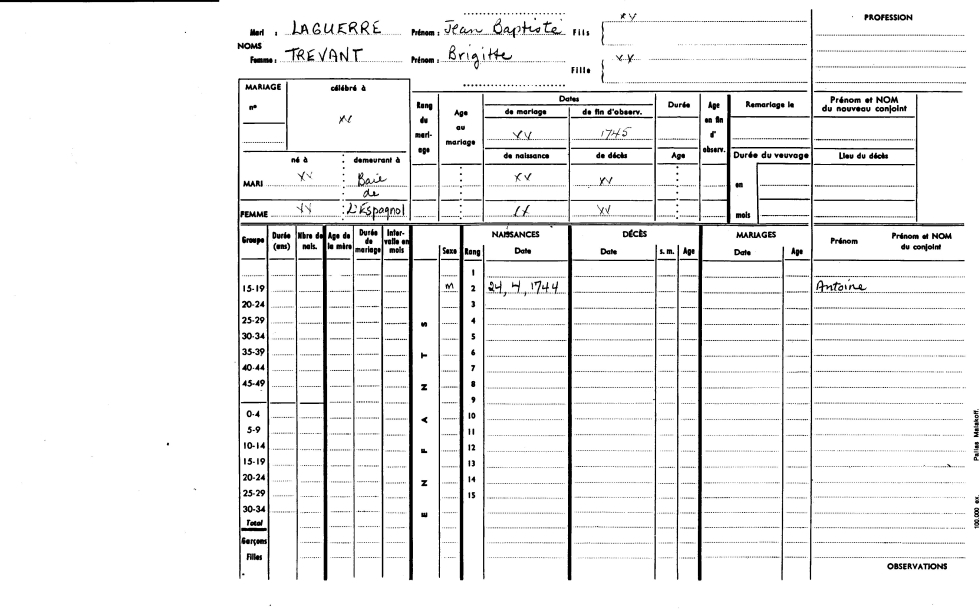 Mari : LAGUERRE Prénom : Jean Baptiste Fils { xy PROFESSION
NOMS
Femme : TREVANT Prénom : Brigitte Fille { xy
MARIAGE célébré à
n° xx
Rang du mari-age Age au mariage Dates Durée Age en fin d' observ. Remariage le Prénom et NOM du nouveau conjoint
de mariage de fin d'observ.
xv 1745
né à demeurant à de naissance de décès Age Durée du veuvage Lieu du décès
MARI xv Baie xv xv en
de
FEMME xv L'Espagnol xx xv mois
Groupe Durée (ans) Nbre de nais. Age de la mère Durée de mariage Inter-valle en mois ENFANTS Sexe Rang NAISSANCES Date DÉCÈS Date s. m. Age MARIAGES Date Age Prénom Prénom et NOM du conjoint
1
15-19 M 2 24, 4, 1744 Antoine
20-24 3
25-29 4
30-34 5
35-39 6
40-44 7
45-49 8
9
0-4 10
5-9 11
10-14 12
15-19 13
20-24 14
25-29 15
30-34
Total
Garçons
Filles
OBSERVATIONS
100,000 ex. Pallas Malakoff.